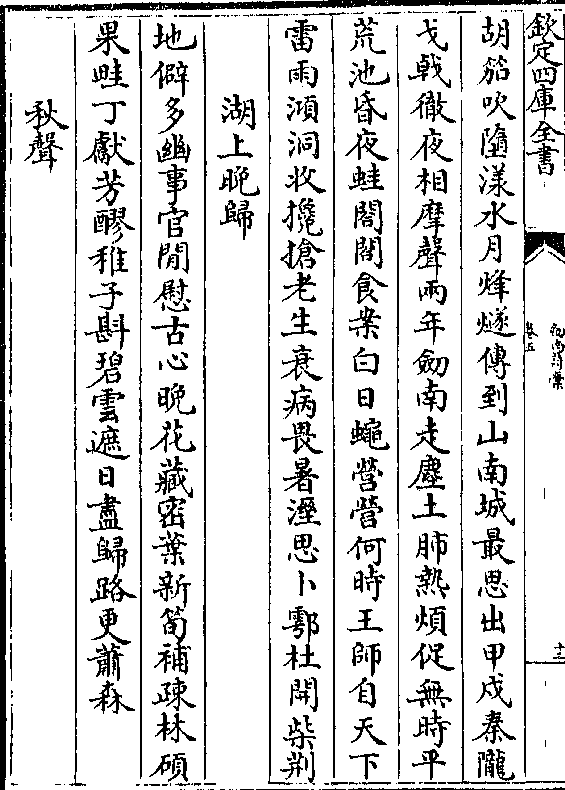 欽定四庫全書
卷五
胡笳吹墮漾水月烽燧傳到山南城最思出甲戍秦隴
戈戟徹夜相摩聲兩年劒南走塵土肺熱煩促無時平
荒池昏夜蛙閤閤食案白日蠅營營何時王師自天下
雷雨澒洞收攙搶老生衰病畏暑溼思卜鄠杜開柴荆
湖上晚歸
地僻多幽事官閒慰古心晚花藏密葉新筍補疎林碩
果畦丁獻芳醪稚子斟碧雲遮日盡歸路更蕭森
秋聲